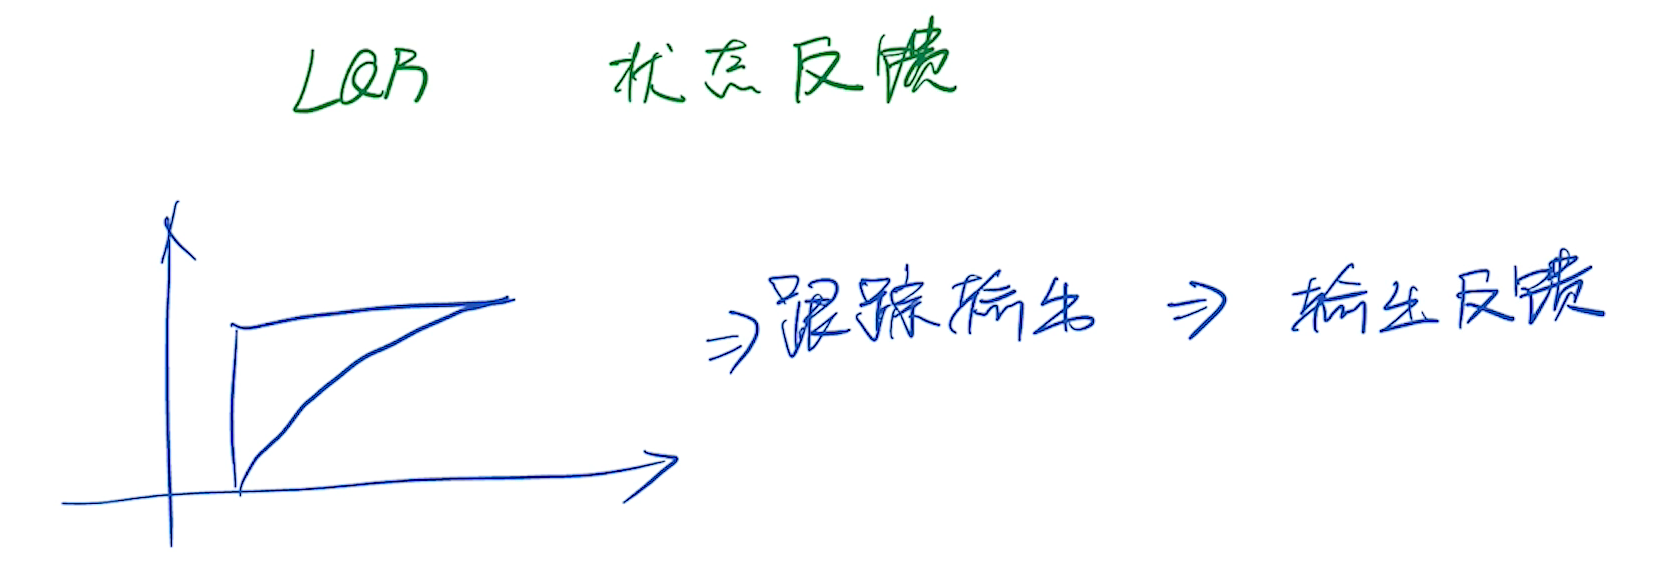 LQR 状态反馈
⇒跟踪输出 ⇒ 输出反馈